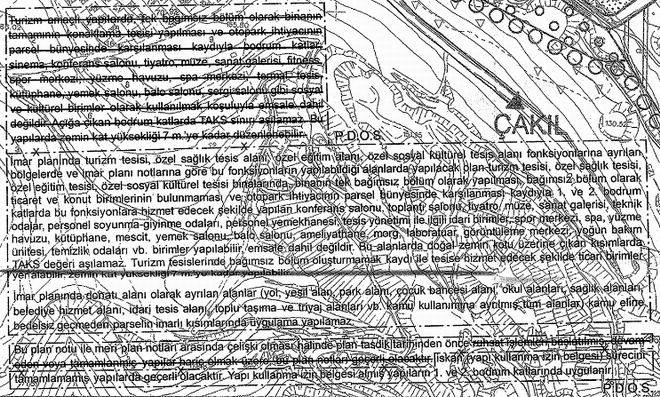 Turizm amaçlı yapılarda, tek bağımsız bölüm olarak binanın
tamamının konaklama tesisi yapılması ve otopark ihtiyacının
parsel bünyesinde karşılanması kaydıyla bodrum katlar,
sinema, konferans salonu, tiyatro, müze, sanat galerisi, fitness,
spor merkezi, yüzme havuzu, spa merkezi, termal tesis,
kütüphane, yemek salonu, balo salonu, sergi salonu gibi sosyal
ve kültürel birimler olarak kullanılmak koşuluyla emsale dahil
değildir. Açığa çıkan bodrum katlarda TAKS sınırı aşılamaz. Bu
yapılarda zemin kat yüksekliği 7 m.'ye kadar düzenlenebilir.
P.D.O.S.
ÇAKIL
130.52
İmar planında turizm tesisi, özel sağlık tesis alanı, özel eğitim alanı, özel sosyal kültürel tesis alanı fonksiyonlarına ayrılan
bölgelerde ve imar planı notlarına göre bu fonksiyonların yapılabildiği alanlarda yapılacak olan turizm tesisi, özel sağlık tesisi,
özel eğitim tesisi, özel sosyal kültürel tesis binalarında, binanın tek bağımsız bölüm olarak yapılması, bağımsız bölüm olarak
ticaret ve konut birimlerinin bulunmaması ve otopark ihtiyacının parsel bünyesinde karşılanması kaydıyla 1. ve 2. bodrum
katlarda bu fonksiyonlara hizmet edecek şekilde yapılan konferans salonu, toplantı salonu, tiyatro, müze, sanat galerisi, teknik
odalar, personel soyunma-giyinme odaları, personel yemekhanesi, tesis yönetimi ile ilgili idari birimler, spor merkezi, spa, yüzme
havuzu, kütüphane, mescit, yemek salonu, balo salonu, ameliyathane, morg, laboratuar, görüntüleme merkezi, yoğun bakım
ünitesi, temizlik odaları vb. birimler yapılabilir, emsale dahil değildir. Bu alanlarda doğal zemin kotu üzerine çıkan kısımlarda
TAKS değeri aşılamaz. Turizm tesislerinde bağımsız bölüm oluşturmamak kaydı ile tesise hizmet edecek şekilde ticari birimler
yer alabilir. zemin kat yüksekliği 7 m.'ye kadar yapılabilir.
İmar planında donatı alanı olarak ayrılan alanlar (yol, yeşil alan, park alanı, çocuk bahçesi alanı, okul alanları, sağlık alanları,
belediye hizmet alanı, idari tesis alanı, toplu taşıma ve triyaj alanları vb. kamu kullanımına ayrılmış tüm alanlar) kamu eline
bedelsiz geçmeden parselin imarlı kısımlarında uygulama yapılamaz.
Bu plan notu ile meri plan notları arasında çelişki olması halinde plan tasdik tarihinden önce ruhsat işlemleri başlatılmış, devam
eden veya tamamlanmış yapılar hariç olmak üzere, bu plan notları geçerli olacaktır. İskan (yapı kullanma izin belgesi) sürecini
tamamlamamış yapılarda geçerli olacaktır. Yapı kullanma izin belgesi almış yapıların 1. ve 2. bodrum katlarında uygulanır.
P.D.O.S.